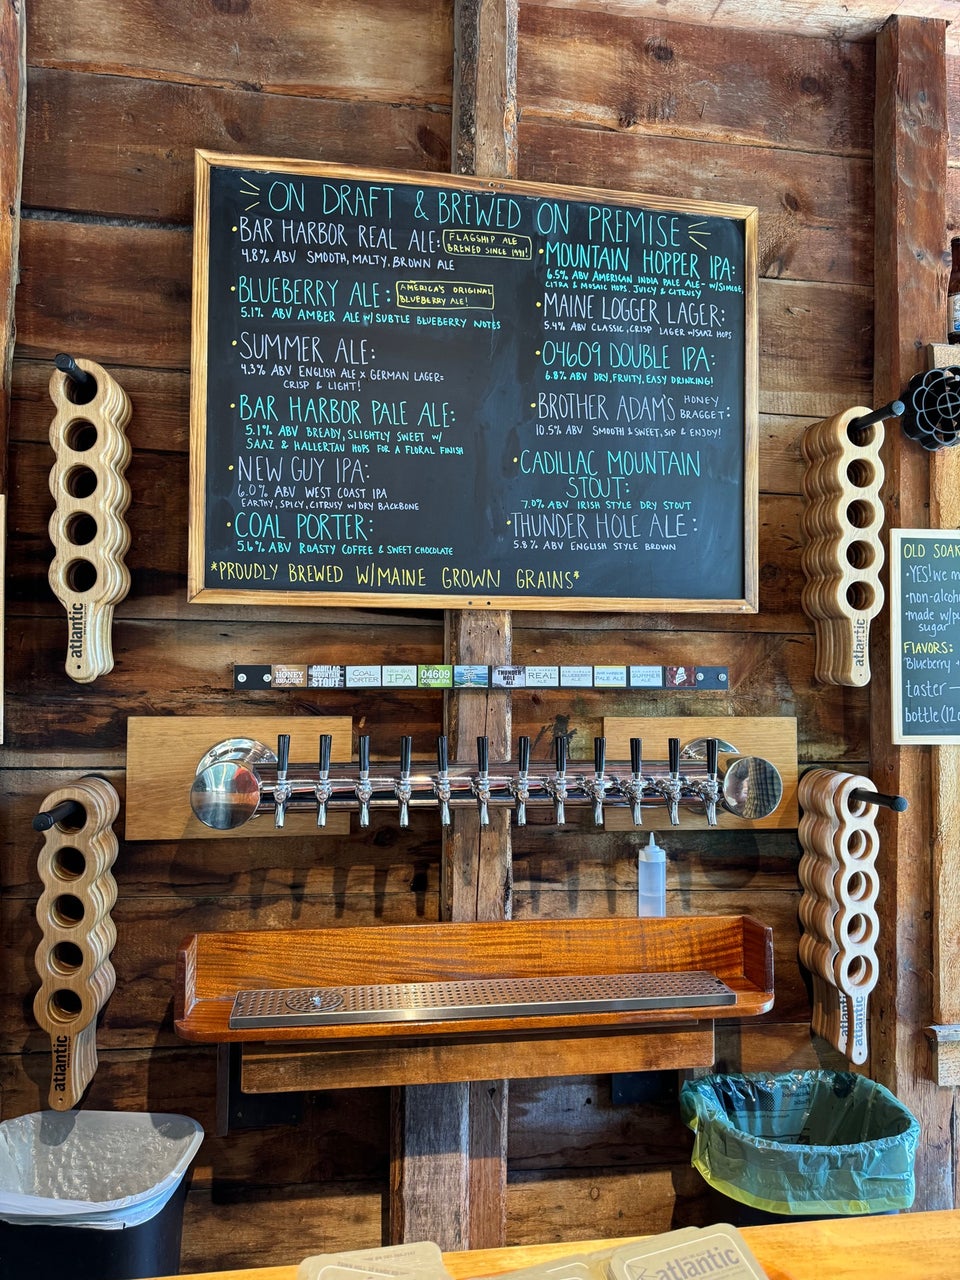 ON DRAFT & BREWED ON PREMISE
BAR HARBOR REAL ALE:
FLAGSHIP ALE
BREWED SINCE 1991!
4.8% ABV SMOOTH, MALTY, BROWN ALE
BLUEBERRY ALE:
AMERICA'S ORIGINAL
BLUEBERRY ALE!
5.1% ABV AMBER ALE W/ SUBTLE BLUEBERRY NOTES
SUMMER ALE:
4.3% ABV ENGLISH ALE x GERMAN LAGER=
CRISP & LIGHT!
BAR HARBOR PALE ALE:
5.1% ABV BREADY, SLIGHTLY SWEET W/
SAAZ & HALLERTAU HOPS FOR A FLORAL FINISH
NEW GUY IPA:
6.0% ABV WEST COAST IPA
EARTHY, SPICY, CITRUSY W/ DRY BACKBONE
COAL PORTER:
5.6% ABV ROASTY COFFEE & SWEET CHOCOLATE
MOUNTAIN HOPPER IPA:
6.5% ABV AMERICAN INDIA PALE ALE - W/ SIMCOE,
CITRA & MOSAIC HOPS. JUICY & CITRUSY
MAINE LOGGER LAGER:
5.4% ABV CLASSIC, CRISP LAGER W/ SAAZ HOPS
04609 DOUBLE IPA:
6.8% ABV DRY, FRUITY, EASY DRINKING!
BROTHER ADAM'S HONEY
BRAGGET:
10.5% ABV SMOOTH & SWEET, SIP & ENJOY!
CADILLAC MOUNTAIN
STOUT:
7.0% ABV IRISH STYLE DRY STOUT
THUNDER HOLE ALE:
5.8% ABV ENGLISH STYLE BROWN
*PROUDLY BREWED W/MAINE GROWN GRAINS*
HONEY
BRAGGET
CADILLAC
MOUNTAIN
STOUT
COAL
PORTER
IPA
04609
DOUBLE IPA
THUNDER
HOLE
ALE
REAL
BLUEBERRY
PALE ALE
SUMMER
OLD SOAK
YES! we m
non-alcoho
made w/pu
sugar
FLAVORS:
Blueberry
taster
bottle (12o
atlantic
atlantic
atlantic
atlantic
atlantic
atlantic